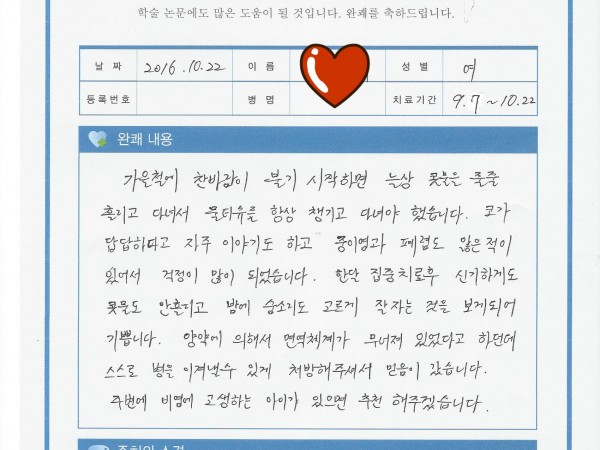 학술 논문에도 많은 도움이 될 것입니다. 완쾌를 축하드립니다.
날 짜 2016.10.22 이 름 성 별 여
등록번호 병 명 치료기간 9.7 ~ 10.22
완쾌 내용
가을철에 찬바람이 불기 시작하면 늘상 콧물을 줄줄
흘리고 다녀서 물티슈를 항상 챙기고 다녀야 했습니다. 코가
답답하다고 자주 이야기도 하고 중이염과 폐렴도 앓은적이
있어서 걱정이 많이 되었습니다. 한달 집중치료후 신기하게도
콧물도 안흘리고 밤에 숨소리도 고르게 잘자는 것을 보게되어
기쁩니다. 양약에 의해서 면역체계가 무너져 있었다고 하던데
스스로 병을 이겨낼수 있게 처방해주셔서 믿음이 갔습니다.
주변에 비염에 고생하는 아이가 있으면 추천 해주겠습니다.